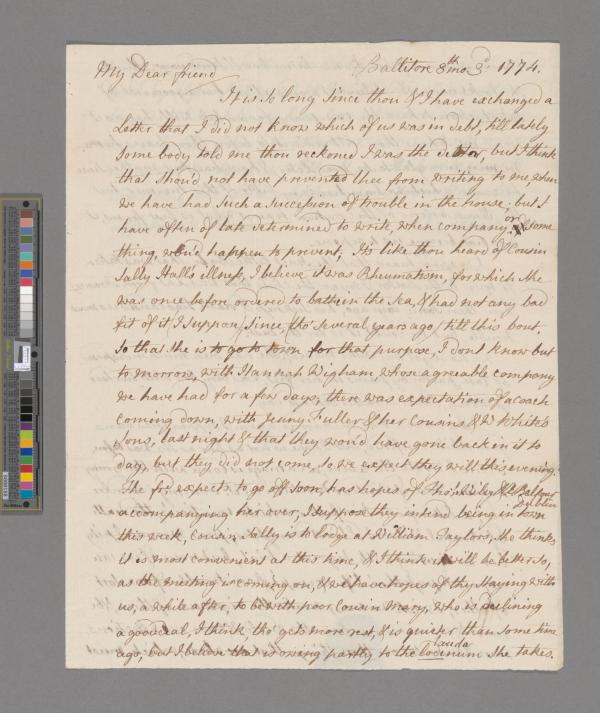 My Dear friend
Baltitore 8th mo. 3d. 1774.
It is so long since thou & I have exchanged a
Letter that I did not know which of us was in debt, till lately
somebody told me thou reckoned I was the debtor, but I think
that shou'd not have prevented thee from writing to me, when
we have had such a succession of trouble in the house; but I
have often of late determined to write, when company or some
thing, wou'd happen to prevent; It's like thou heard of Cousin
Sally Hall's illness, I believe it was Rheumatism, for which she
was once before ordered to bathe in the Sea, & had not any bad
fit of it, I suppose, since, tho' several years ago, till this bout.
So that she is to go to town for that purpose, I dont know but
to morrow, with Hannah Wigham, whose agreeable company
we have had for a few days; there was expectation of a coach
coming down, with Jenny Fuller & her Cousins & W White's
sons, last night & that they wou'd have gone back in it to
day, but they did not come, so we expect they will this evening.
The frd. expects to go off soon, has hopes of
accompanying her over, I suppose they intend being in town Dublin
this week, Cousin Sally is to lodge at William Taylors, she thinks
it is most convenient at this time, & I think it will be better so,
as the meeting is coming on, & we have hopes of thy staying with
us, a while after, to be with poor Cousin Mary, who is declining
a good deal, I think, tho' gets more rest, & is quieter than some time
ago, but I believe that is owing partly to the laudanum she takes.